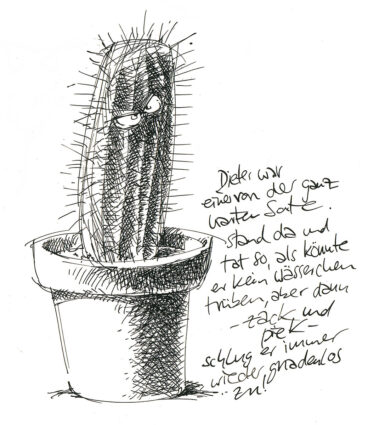 Dieter war
einer von der ganz
harten Sorte.
stand da und
tat so, als könnte
er kein Wässerchen
trüben, aber dann
-zack, und
piek-
schlug er immer
wieder, gnadenlos
zu!